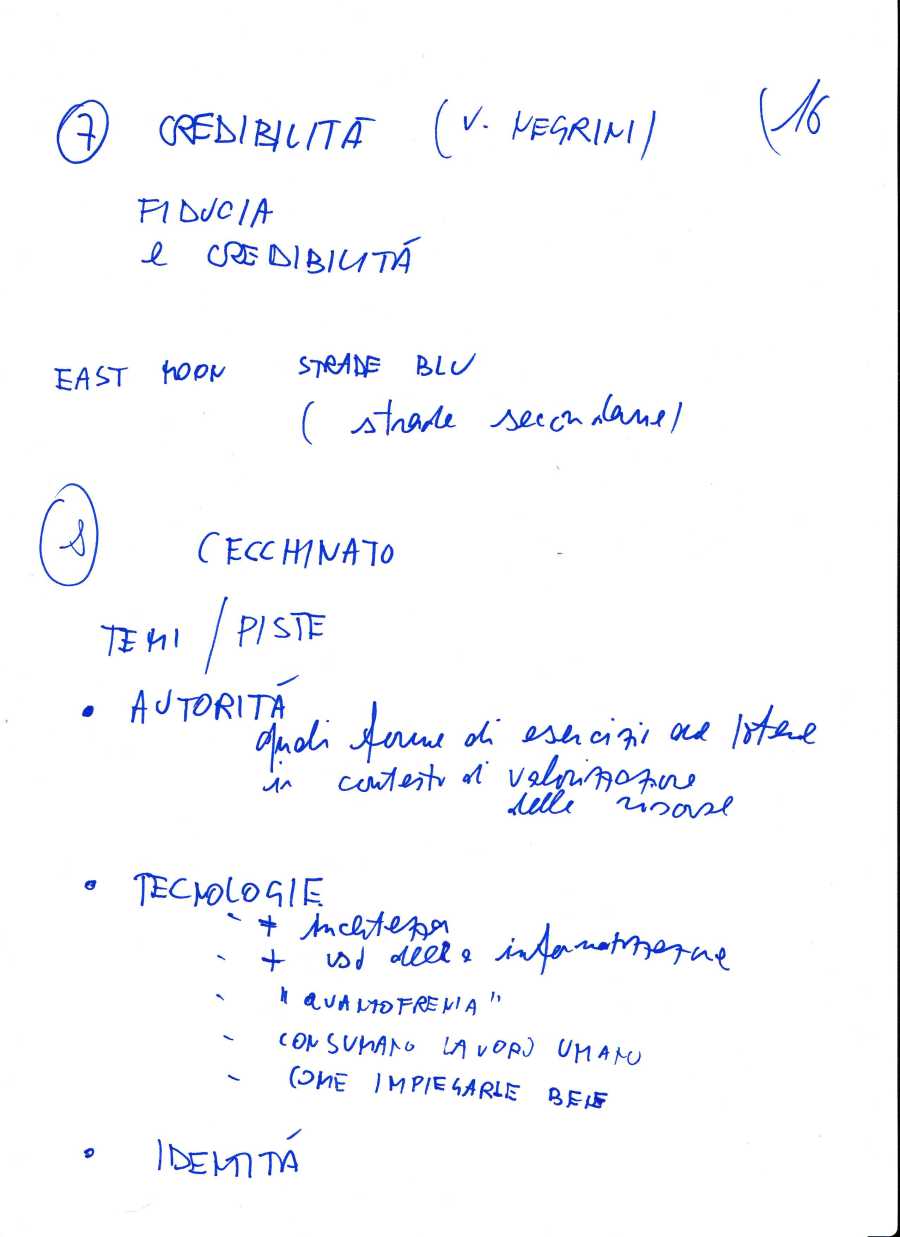 7 CREDIBILITÁ (V. NEGRINI) (16
FIDUCIA
e CREDIBILITÁ
EAST MOON STRADE BLU
( strade secondarie)
CECCHINATO
TEMI / PISTE
• AUTORITÁ
quali forme di esercizi del potere
in contesti di valorizzazione
delle risorse
• TECNOLOGIE
- + incertezza
- + uso della informatizzazione
- "QUANTOFRENIA"
- CONSUMANO LAVORO UMANO
- COME IMPIEGARLE BENE
• IDENTITÁ